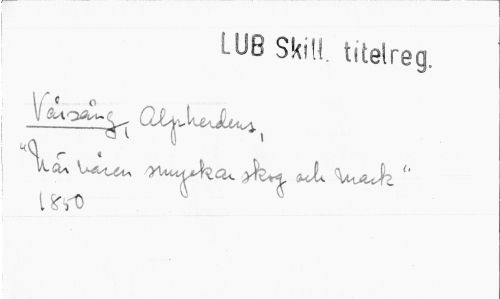 LUB Skill. titelreg.
Vårsång, Alpherdens,
"När våren smyckar skog och mark"
1850